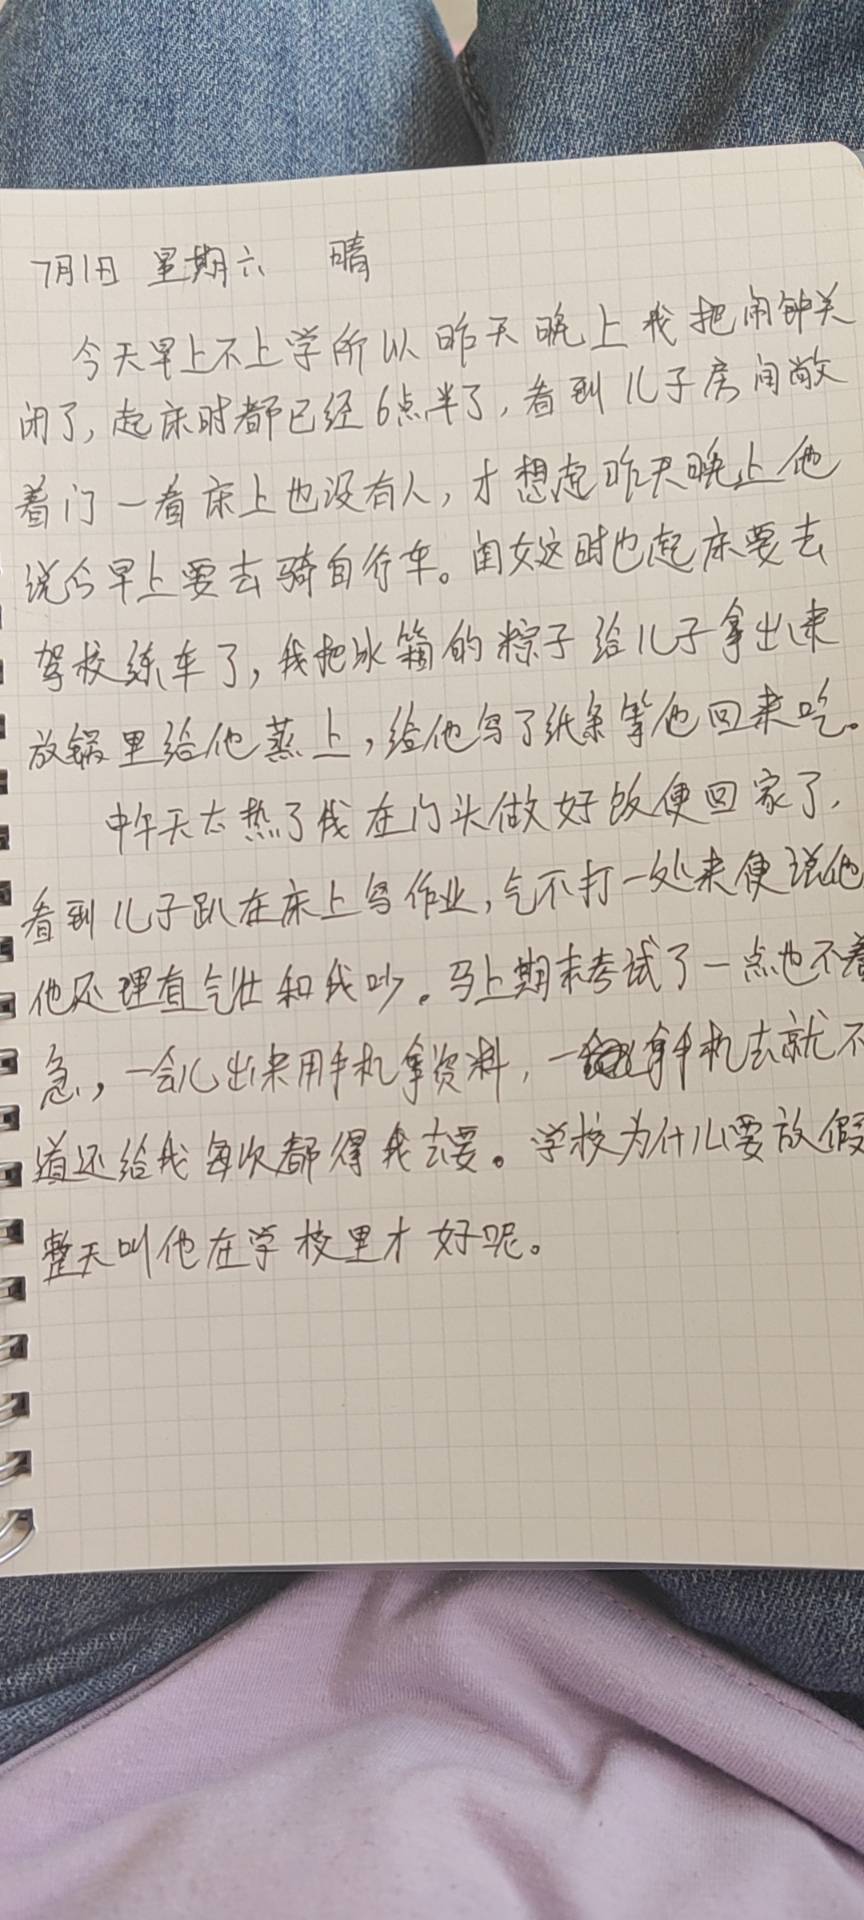 7月1日 星期六 晴
今天早上不上学所以昨天晚上我把闹钟关
闭了,起床时都已经6点半了,看到儿子房间敞
着门一看床上也没有人,才想起昨天晚上他
说今早上要去骑自行车。闺女这时也起床要去
驾校练车了,我把冰箱的粽子给儿子拿出来
放锅里给他蒸上,给他写了纸条等他回来吃。
中午天太热了我在门头做好饭便回家了,
看到儿子趴在床上写作业,气不打一处来便说他
他还理直气壮和我吵。马上期末考试了一点也不着
急,一会儿出来用手机拿资料,一拿手机去就不
道还给我每次都得我去要。学校为什么要放假
整天叫他在学校里才好呢。